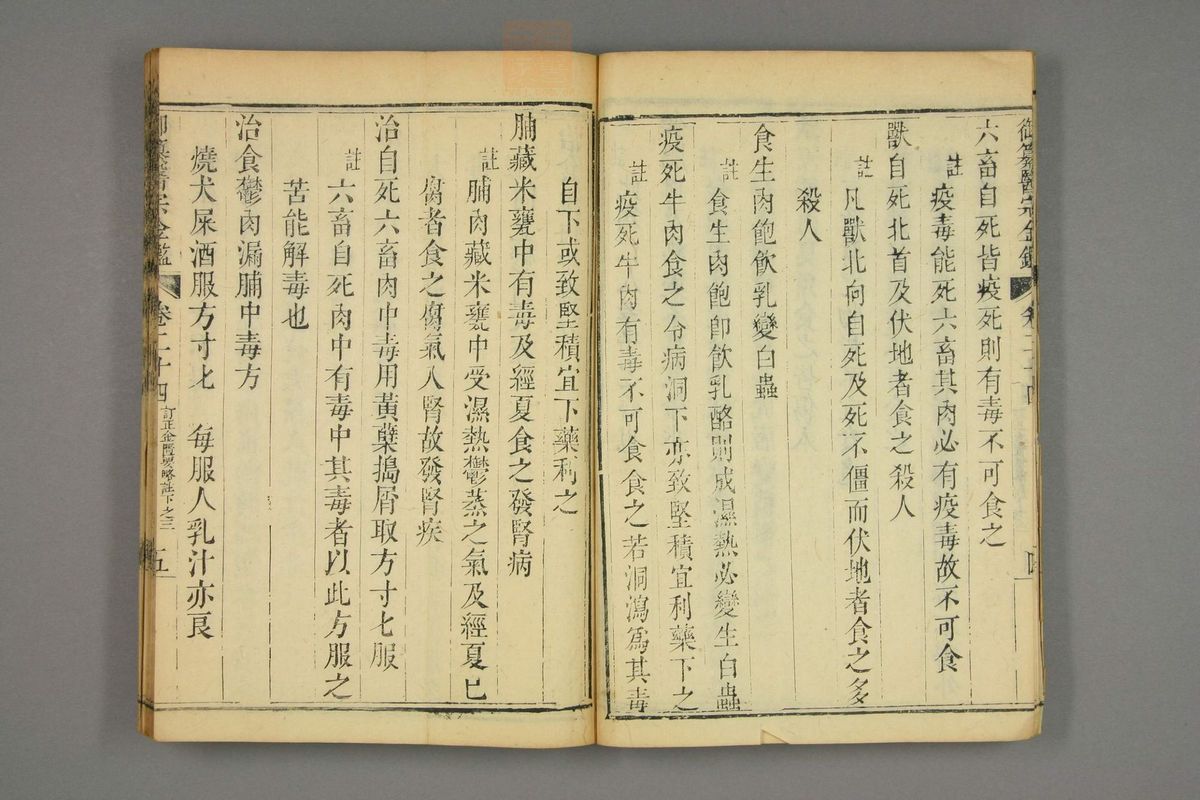 六畜自死皆疫死則有毒不可食之
註疫毒能死六畜其肉必有疫毒故不可食
獸自死北首及伏地者食之殺人
註凡獸北向自死及死不僵而伏地者食之多
殺人
食生肉飽飲乳變白蟲
註食生肉飽卽飲乳酪則成濕熱必變生白蟲
疫死牛肉食之令病洞下亦致堅積宜利藥下之
註疫死牛肉有毒不可食食之若洞瀉爲其毒
自下或致堅積宜下藥利之
脯藏米甕中有毒及經夏食之發腎病
註脯肉藏米甕中受濕熱鬱蒸之氣及經夏已
腐者食之腐氣入腎故發腎疾
治自死六畜肉中毒用黃蘗搗屑取方寸匕服
註六畜自死肉中有毒中其毒者以此方服之
苦能解毒也
治食鬱肉漏脯中毒方
燒犬屎酒服方寸匕 每服人乳汁亦良
卷二十四 訂正金匱要略註下之三 五